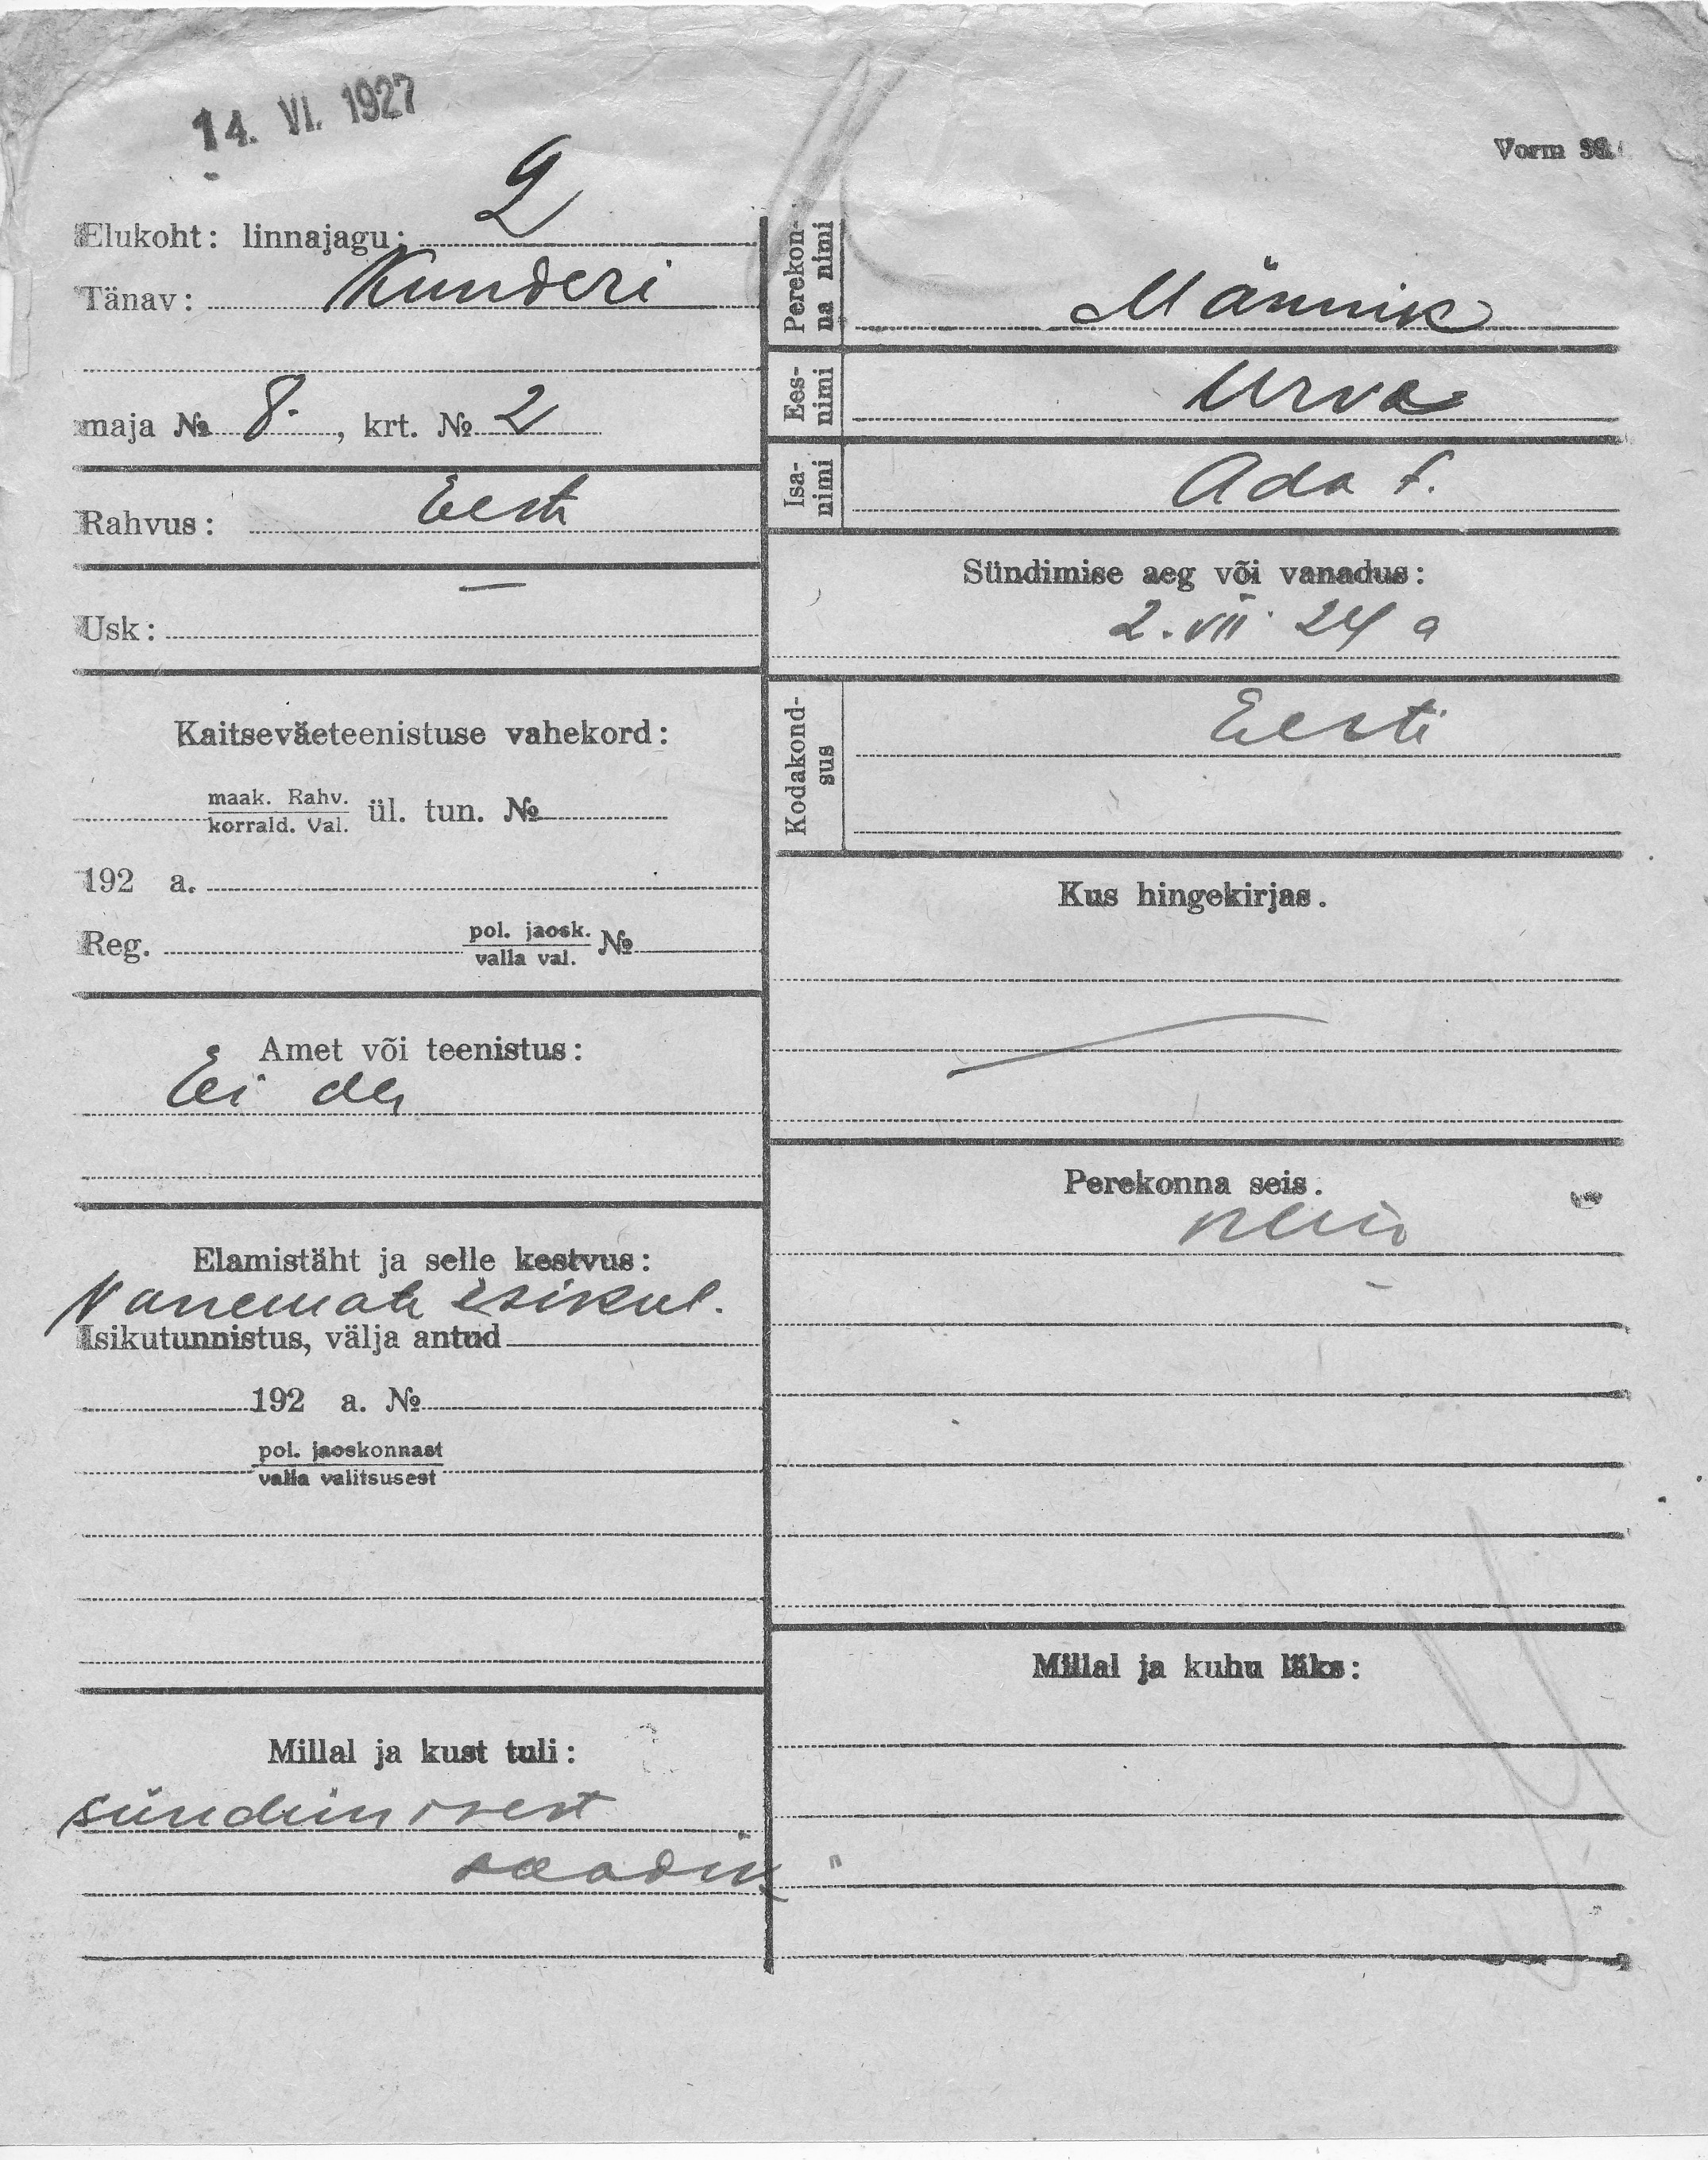 14. VI. 1927
Vorm 36.
Elukoht: linnajagu: 2
Tänav: Kunderi
maja № 8. , krt. № 2
Rahvus: Eesti
Usk: —
Kaitseväeteenistuse vahekord:
maak. Rahv.
korrald. Val. ül. tun. №
192 a.
Reg. pol. jaosk. №
valla val.
Amet või teenistus:
Ei ole
Elamistäht ja selle kestvus:
Vanemate isikut.
Isikutunnistus, välja antud
192 a. №
pol. jaoskonnast
valla valitsusest
Millal ja kust tuli:
sündimisest
saadik
Perekon-
na nimi Männik
Ees-
nimi Urve
Isa-
nimi Ado t.
Sündimise aeg või vanadus:
2. VII 24 a
Kodakond-
sus Eesti
Kus hingekirjas.
Perekonna seis.
neiu
Millal ja kuhu läks: